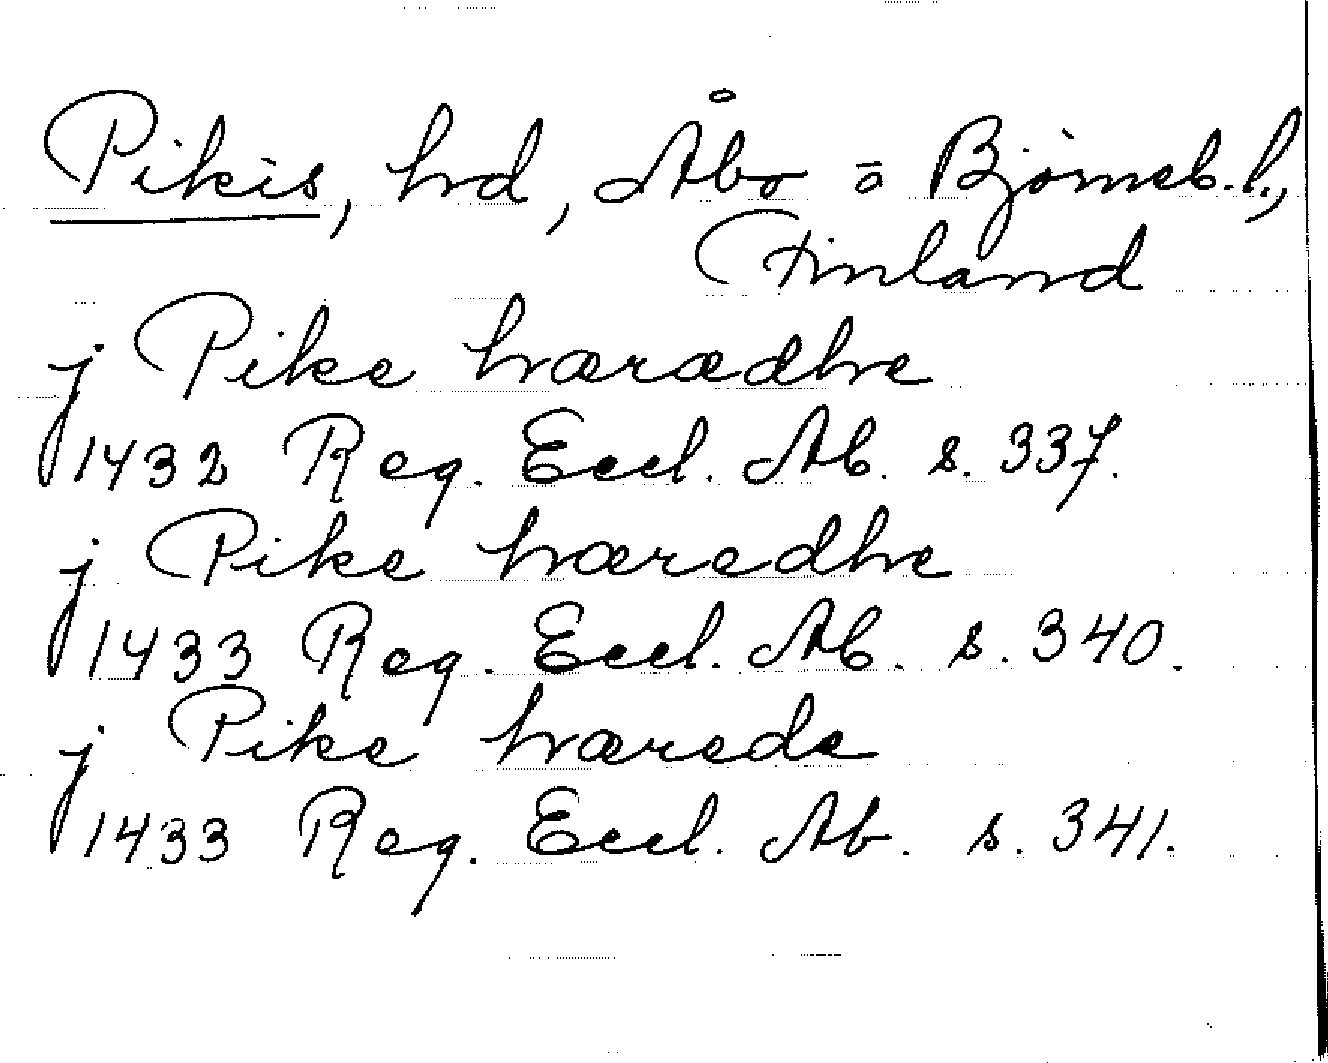 Pikis, hrd, Åbo = Björneb. l.,
Finland
j Pike hærædhe
1432 Reg. Eccl. Ab. s. 337.
j Pike hæredhe
1433 Reg. Eccl. Ab. s. 340.
j Pike hærede
1433 Reg. Eccl. Ab. s. 341.